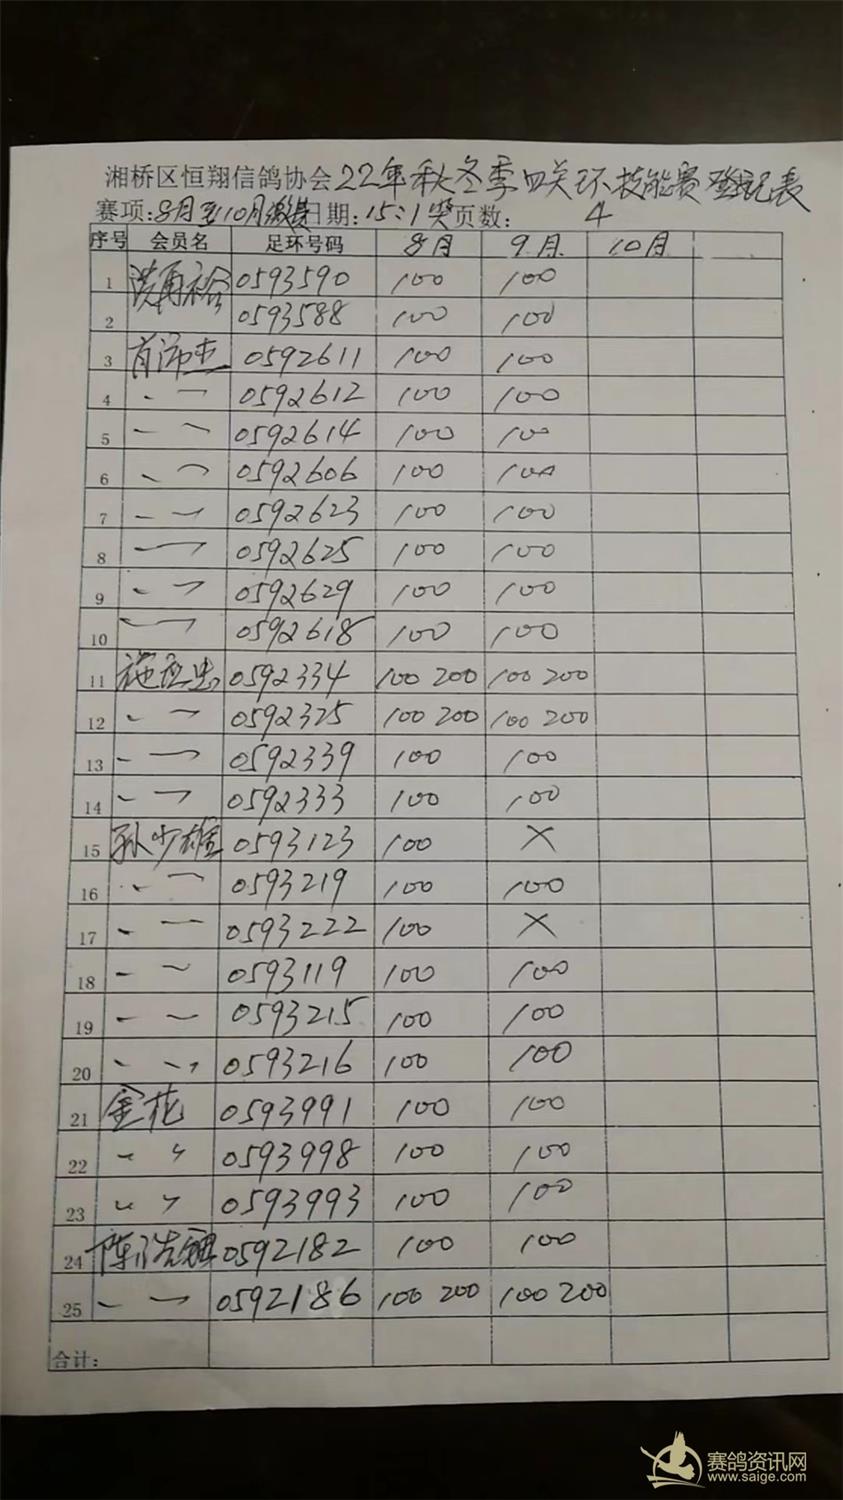 湘桥区恒翔信鸽协会22年秋冬季四关环技能赛登记表
赛项:8月至10月缴费日期:15:1奖页数:4
序号 会员名 足环号码 8月 9月 10月
1 0593590 100 100
2 0593588 100 100
3 0592611 100 100
4 〃 0592612 100 100
5 〃 0592614 100 100
6 〃 0592606 100 100
7 〃 0592623 100 100
8 〃 0592625 100 100
9 〃 0592629 100 100
10 〃 0592618 100 100
11 0592334 100 200 100 200
12 〃 0592325 100 200 100 200
13 〃 0592339 100 100
14 〃 0592333 100 100
15 孙少雄 0593123 100 ×
16 〃 0593219 100 100
17 〃 0593222 100 ×
18 〃 0593119 100 100
19 〃 0593215 100 100
20 〃 0593216 100 100
21 金花 0593991 100 100
22 〃 0593998 100 100
23 〃 0593993 100 100
24 陈浩 0592182 100 100
25 〃 0592186 100 200 100 200
合计:
赛鸽资讯网
www.saige.com